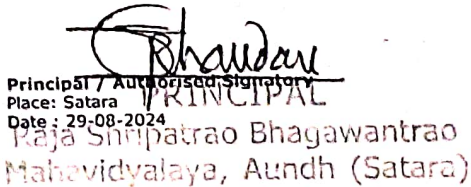 Principal / Authorised Signatory
PRINCIPAL
Place: Satara
Date : 29-08-2024
Raja Shripatrao Bhagawantrao
Mahavidyalaya, Aundh (Satara)